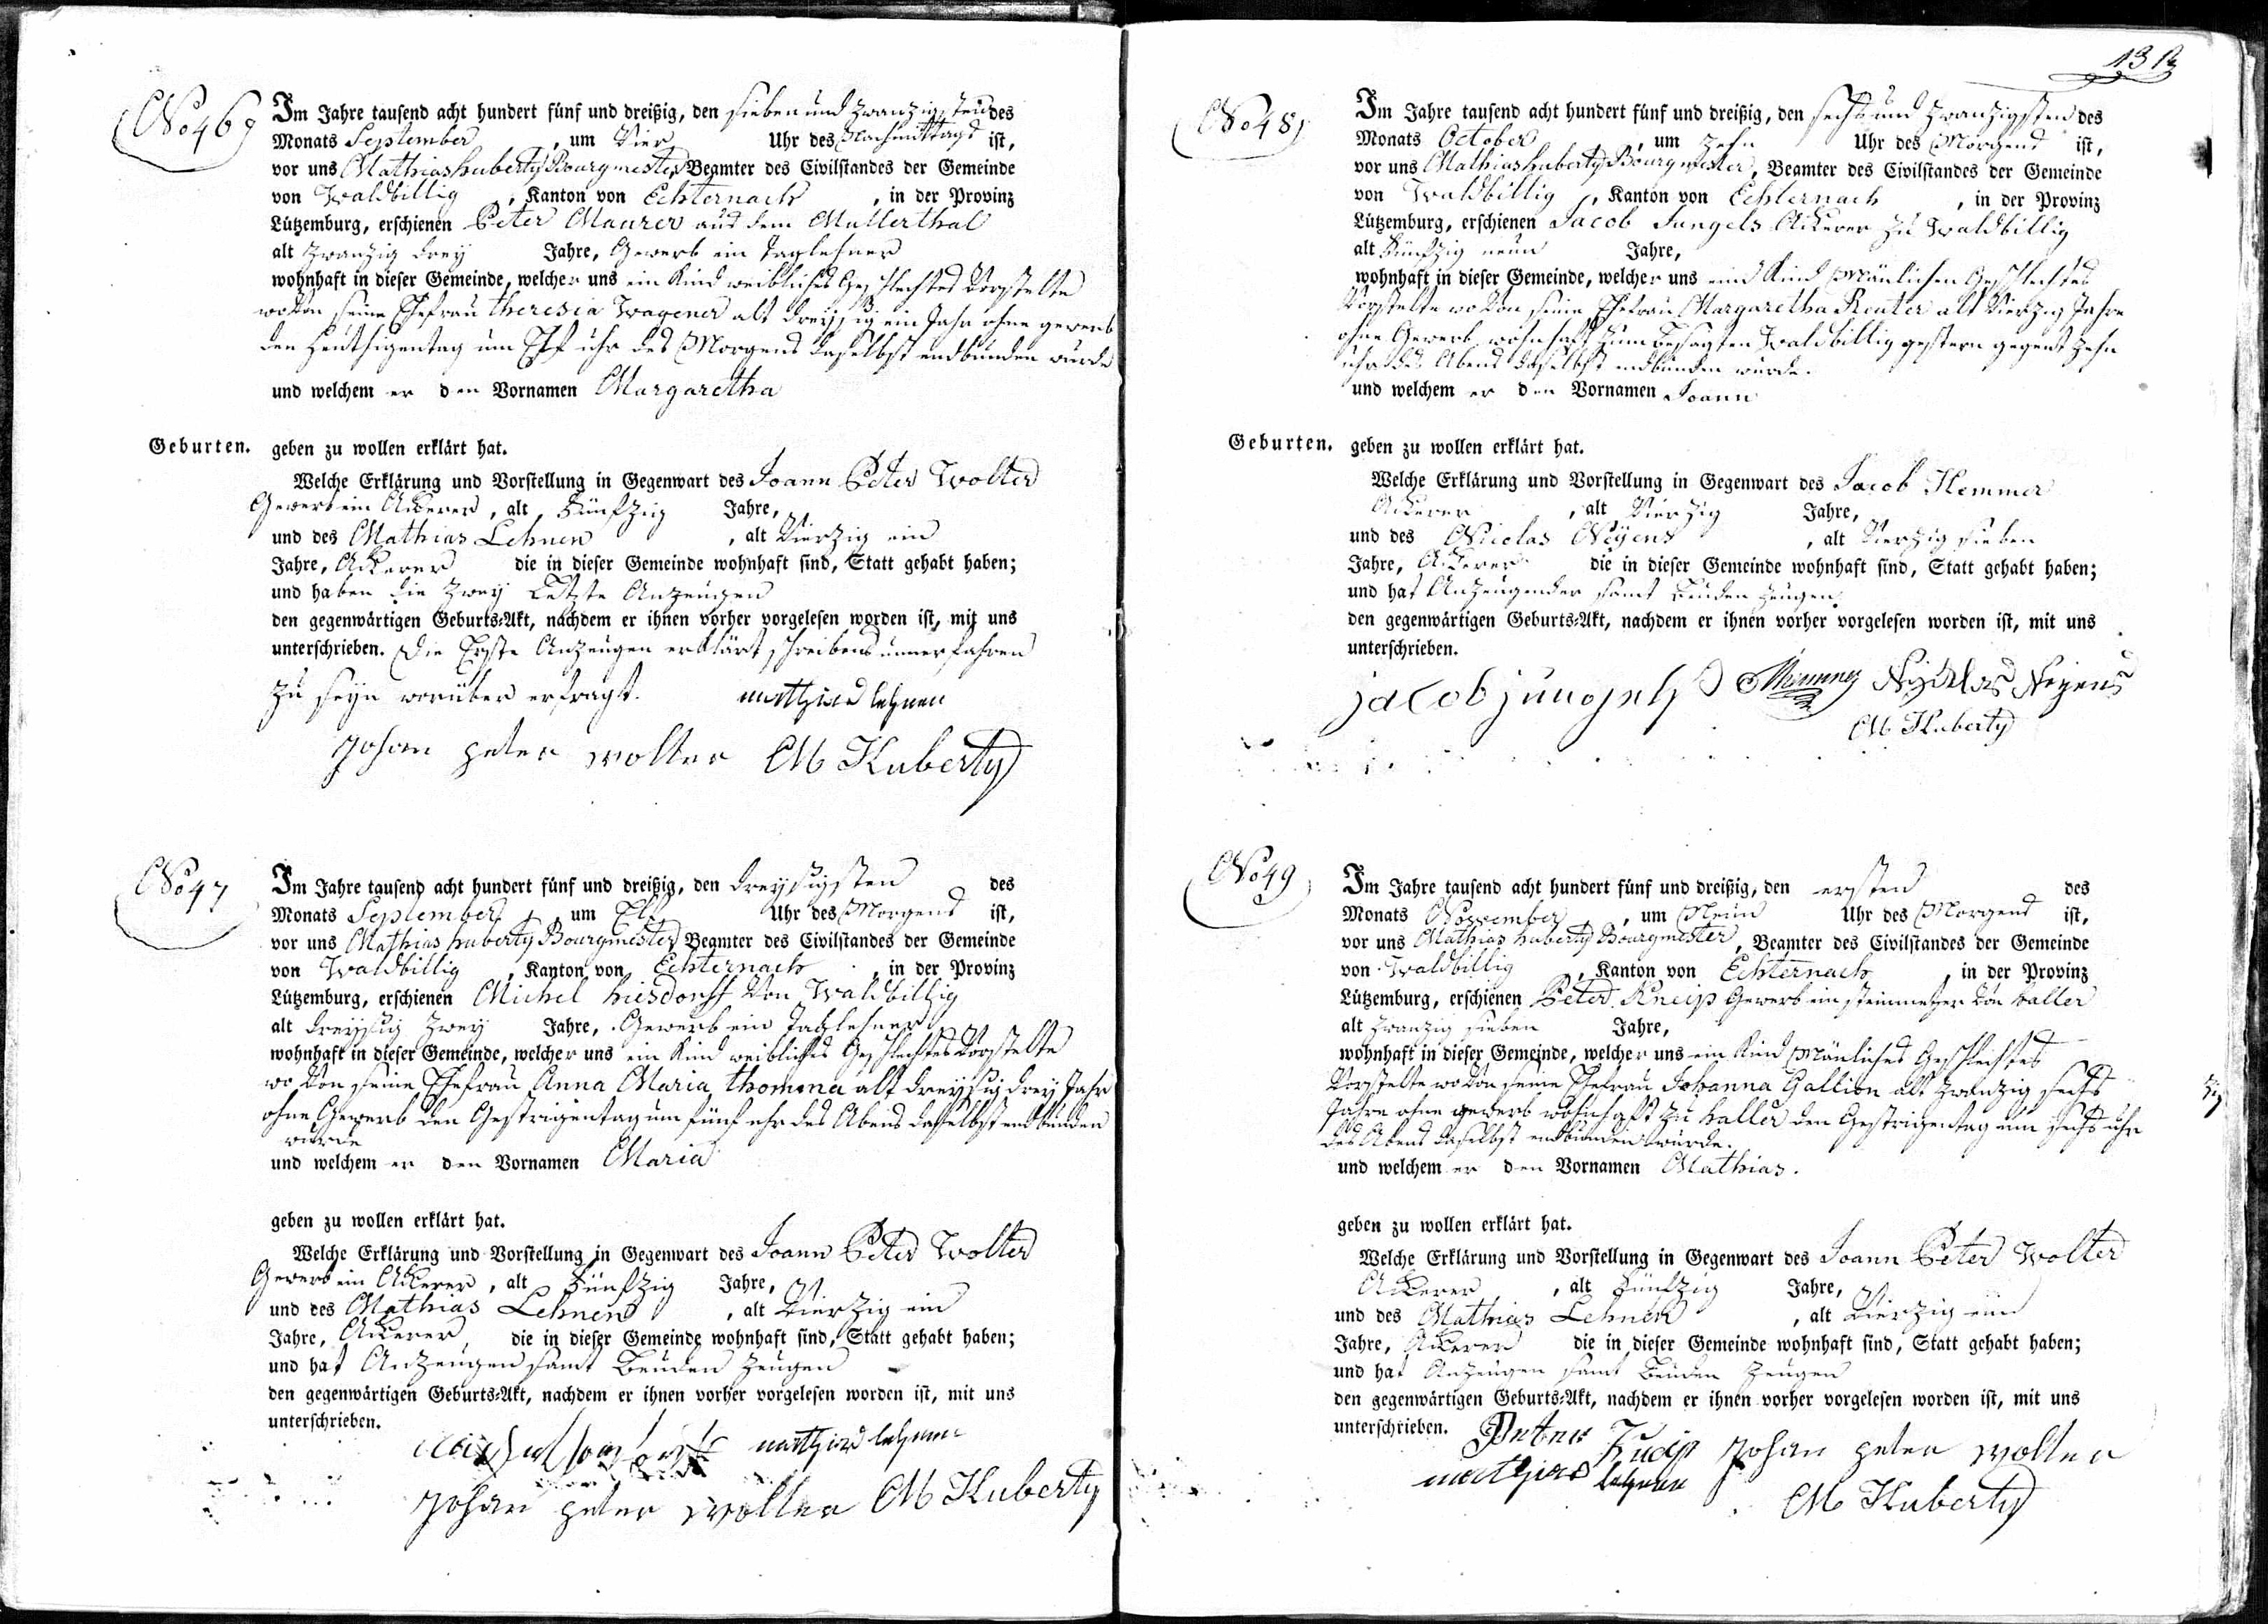 No 46
Im Jahre tausend acht hundert fünf und dreißig, den sieben und zwanzigsten des
Monats September, um Vier Uhr des Nachmittags ist,
vor uns Mathias huberty Bourgmester Beamter des Civilstandes der Gemeinde
von Waldbillig, Kanton von Echternach, in der Provinz
Lützemburg, erschienen Peter Maurer aus dem Mullerthal
alt zwanzig drey Jahre, Gewerb ein Taglehner
wohnhaft in dieser Gemeinde, welcher uns ein Kind weibliches Geschlechtes Vorstelte
wo Von seine Ehefrau theresia Wagener alt dreyssig ein Jahr ohne gewerb
den heuthigentag um Elf uhr des Morgens daselbst endbunden wurde
und welchem er den Vornamen Margaretha
Geburten. geben zu wollen erklärt hat.
Welche Erklärung und Vorstellung in Gegenwart des Joann Peter Wolter
Gewerb ein Ackerer, alt fünfzig Jahre,
und des Mathias Lehnen, alt Vierzig ein
Jahre, Ackerer die in dieser Gemeinde wohnhaft sind, Statt gehabt haben;
und haben die zwey Letzte Anzeugen
den gegenwärtigen Geburts=Akt, nachdem er ihnen vorher vorgelesen worden ist, mit uns
unterschrieben. Die Erste Anzeugen erklärt schreibens unnerfahren
zu seyn worüber erfragt. matthias lehnen
Johan peter wolter M Huberty
No 47
Im Jahre tausend acht hundert fünf und dreißig, den dreysigsten des
Monats September, um Elf Uhr des Morgens ist,
vor uns Mathias huberty Bourgmester Beamter des Civilstandes der Gemeinde
von Waldbillig, Kanton von Echternach, in der Provinz
Lützemburg, erschienen Michel hiesdorff Von Waldbillig
alt dreyssig zwey Jahre, Gewerb ein Taglehner
wohnhaft in dieser Gemeinde, welcher uns ein Kind weibliches Geschlechtes Vorstelte
wo Von seine Ehefrau Anna Maria thomma alt dreyssig drey Jahr
ohne Gewerb den Gestrigentag um fünf uhr des Abens daselbst endbunden
wurde
und welchem er den Vornamen Maria
geben zu wollen erklärt hat.
Welche Erklärung und Vorstellung in Gegenwart des Joann Peter Wolter
Gewerb ein Ackerer, alt fünfzig Jahre,
und des Mathias Lehnen, alt Vierzig ein
Jahre, Ackerer die in dieser Gemeinde wohnhaft sind, Statt gehabt haben;
und hat Anzeugen samt beuden zeugen
den gegenwärtigen Geburts=Akt, nachdem er ihnen vorher vorgelesen worden ist, mit uns
unterschrieben.
matthias lehnen
Johan peter wolter M Huberty
No 48
Im Jahre tausend acht hundert fünf und dreißig, den sechs und zwanzigsten des
Monats October, um zehn Uhr des Morgens ist,
vor uns Mathias huberty Bourgmester, Beamter des Civilstandes der Gemeinde
von Waldbillig, Kanton von Echternach, in der Provinz
Lützemburg, erschienen Jacob Jungels Ackerer zu Waldbillig
alt fünfzig neun Jahre,
wohnhaft in dieser Gemeinde, welcher uns eind Kind Mänlichen Geschlechtes
Vorstelte wo Von seine Ehefrau Margaretha Reuter alt Vierzig Jahre
ohne Gewerb wohnhaft zum besagten Waldbillig gestern gegent zehn
uhr des Abens daselbst endbunden wurde.
und welchem er den Vornamen Joann
Geburten. geben zu wollen erklärt hat.
Welche Erklärung und Vorstellung in Gegenwart des Jacob Hemmer
Ackerer, alt Vierzig Jahre,
und des Nicolas Neyens, alt Vierzig sieben
Jahre, Ackerer die in dieser Gemeinde wohnhaft sind, Statt gehabt haben;
und hat Anzeugender samt beuden zeugen
den gegenwärtigen Geburts=Akt, nachdem er ihnen vorher vorgelesen worden ist, mit uns
unterschrieben.
jacob jungels Hemmer Nicklas Neyens
M Huberty
No 49
Im Jahre tausend acht hundert fünf und dreißig, den ersten des
Monats November, um Neun Uhr des Morgens ist,
vor uns Mathias huberty Bourgmester, Beamter des Civilstandes der Gemeinde
von Waldbillig, Kanton von Echternach, in der Provinz
Lützemburg, erschienen Peter Kneip Gewerb ein steinmetzer Von haller
alt zwanzig sieben Jahre,
wohnhaft in dieser Gemeinde, welcher uns ein Kind Mänliches Geschlechtes
Vorstelte wo Von seine Ehefrau Johanna Gallion alt zwanzig sechs
Jahre ohne gewerb wohnhaft zu haller den Gestrigentag um sechs uhr
des Abens daselbst endbunden wurde.
und welchem er den Vornamen Mathias.
geben zu wollen erklärt hat.
Welche Erklärung und Vorstellung in Gegenwart des Joann Peter Wolter
Ackerer, alt fünfzig Jahre,
und des Mathias Lehnen, alt Vierzig ein
Jahre, Ackerer die in dieser Gemeinde wohnhaft sind, Statt gehabt haben;
und hat Anzeugen samt beuden zeugen
den gegenwärtigen Geburts=Akt, nachdem er ihnen vorher vorgelesen worden ist, mit uns
unterschrieben. Peter Kneip Johan peter wolter
matthias lehnen
M Huberty